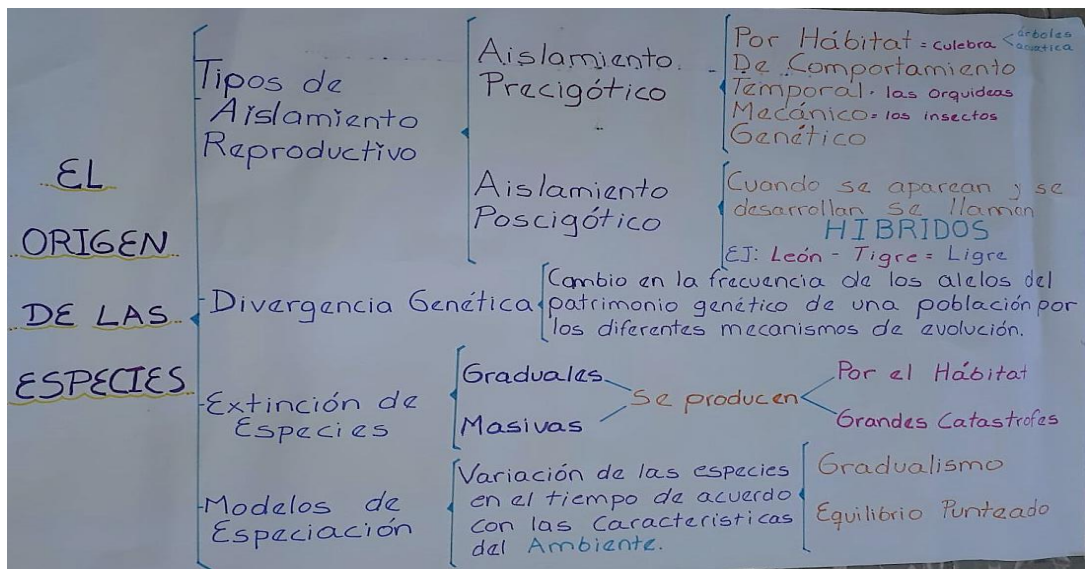 EL
ORIGEN
DE LAS
ESPECIES
Tipos de
Aislamiento
Reproductivo
Aislamiento
Precigótico
Por Hábitat = culebra árboles
acuatica
De Comportamiento
Temporal. las orquideas
Mecánico = los insectos
Genético
Aislamiento
Poscigótico
Cuando se aparean y se
desarrollan se llaman
HIBRIDOS
EJ: León - Tigre = Ligre
- Divergencia Genética
Cambio en la frecuencia de los alelos del
patrimonio genético de una población por
los diferentes mecanismos de evolución.
- Extinción de
Especies
Graduales
Masivas
Se producen
Por el Hábitat
Grandes Catastrofes
- Modelos de
Especiación
Variación de las especies
en el tiempo de acuerdo
con las Caracteristicas
del Ambiente.
Gradualismo
Equilibrio Punteado